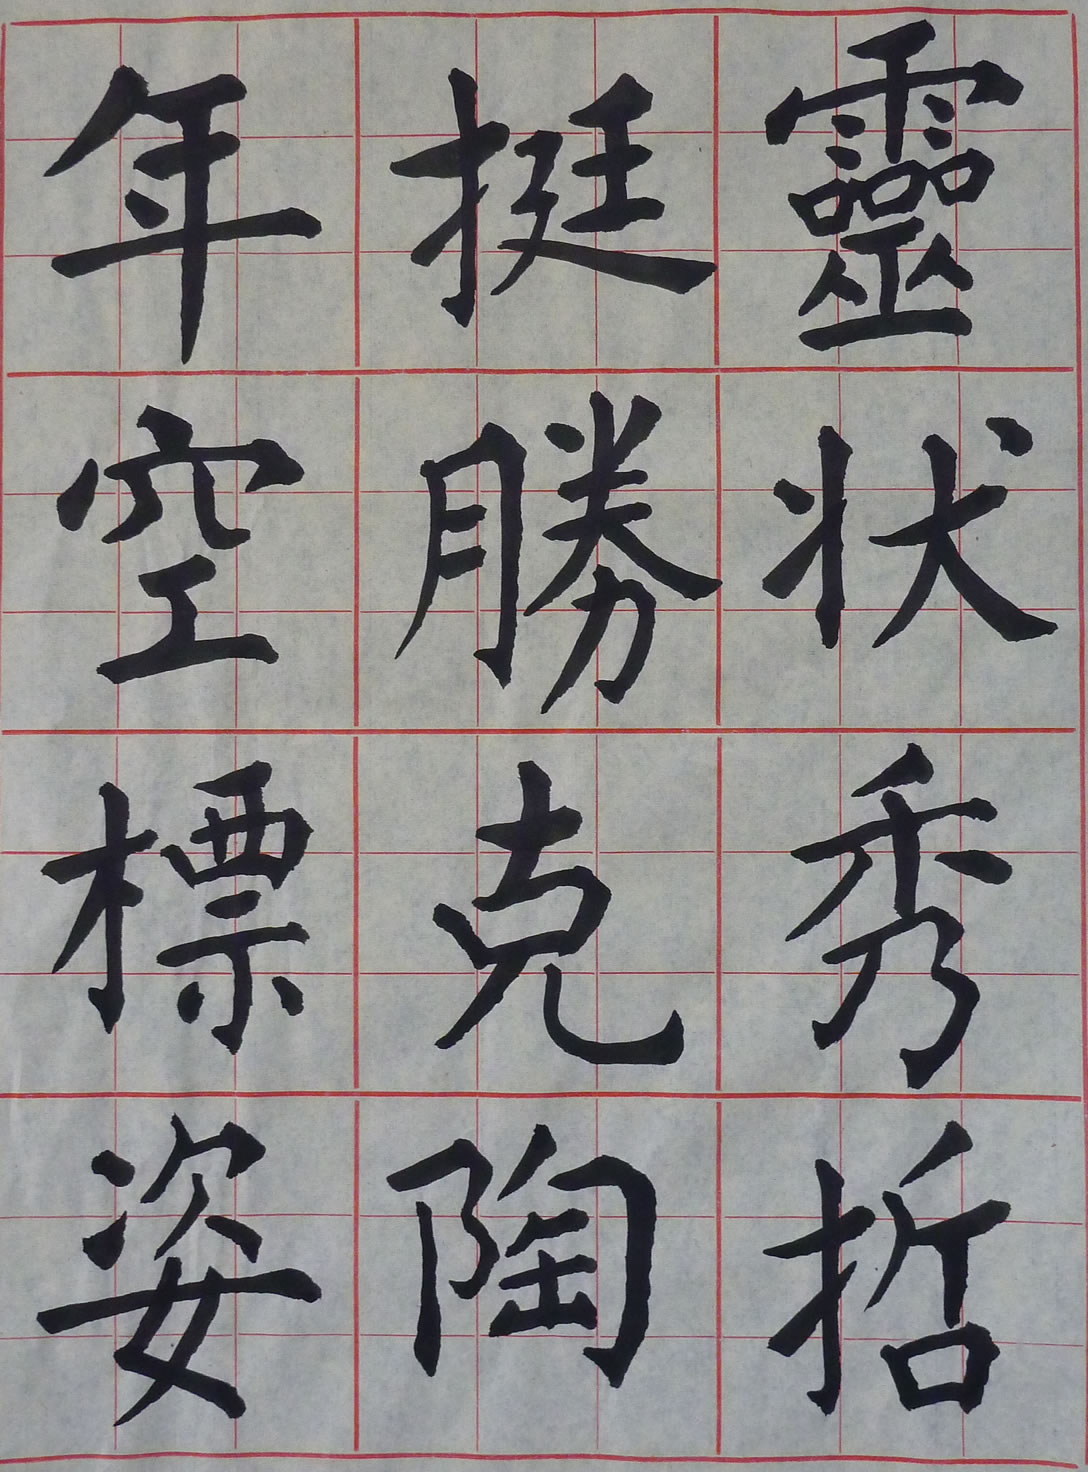 靈状秀哲
挺勝克陶
年空標姿